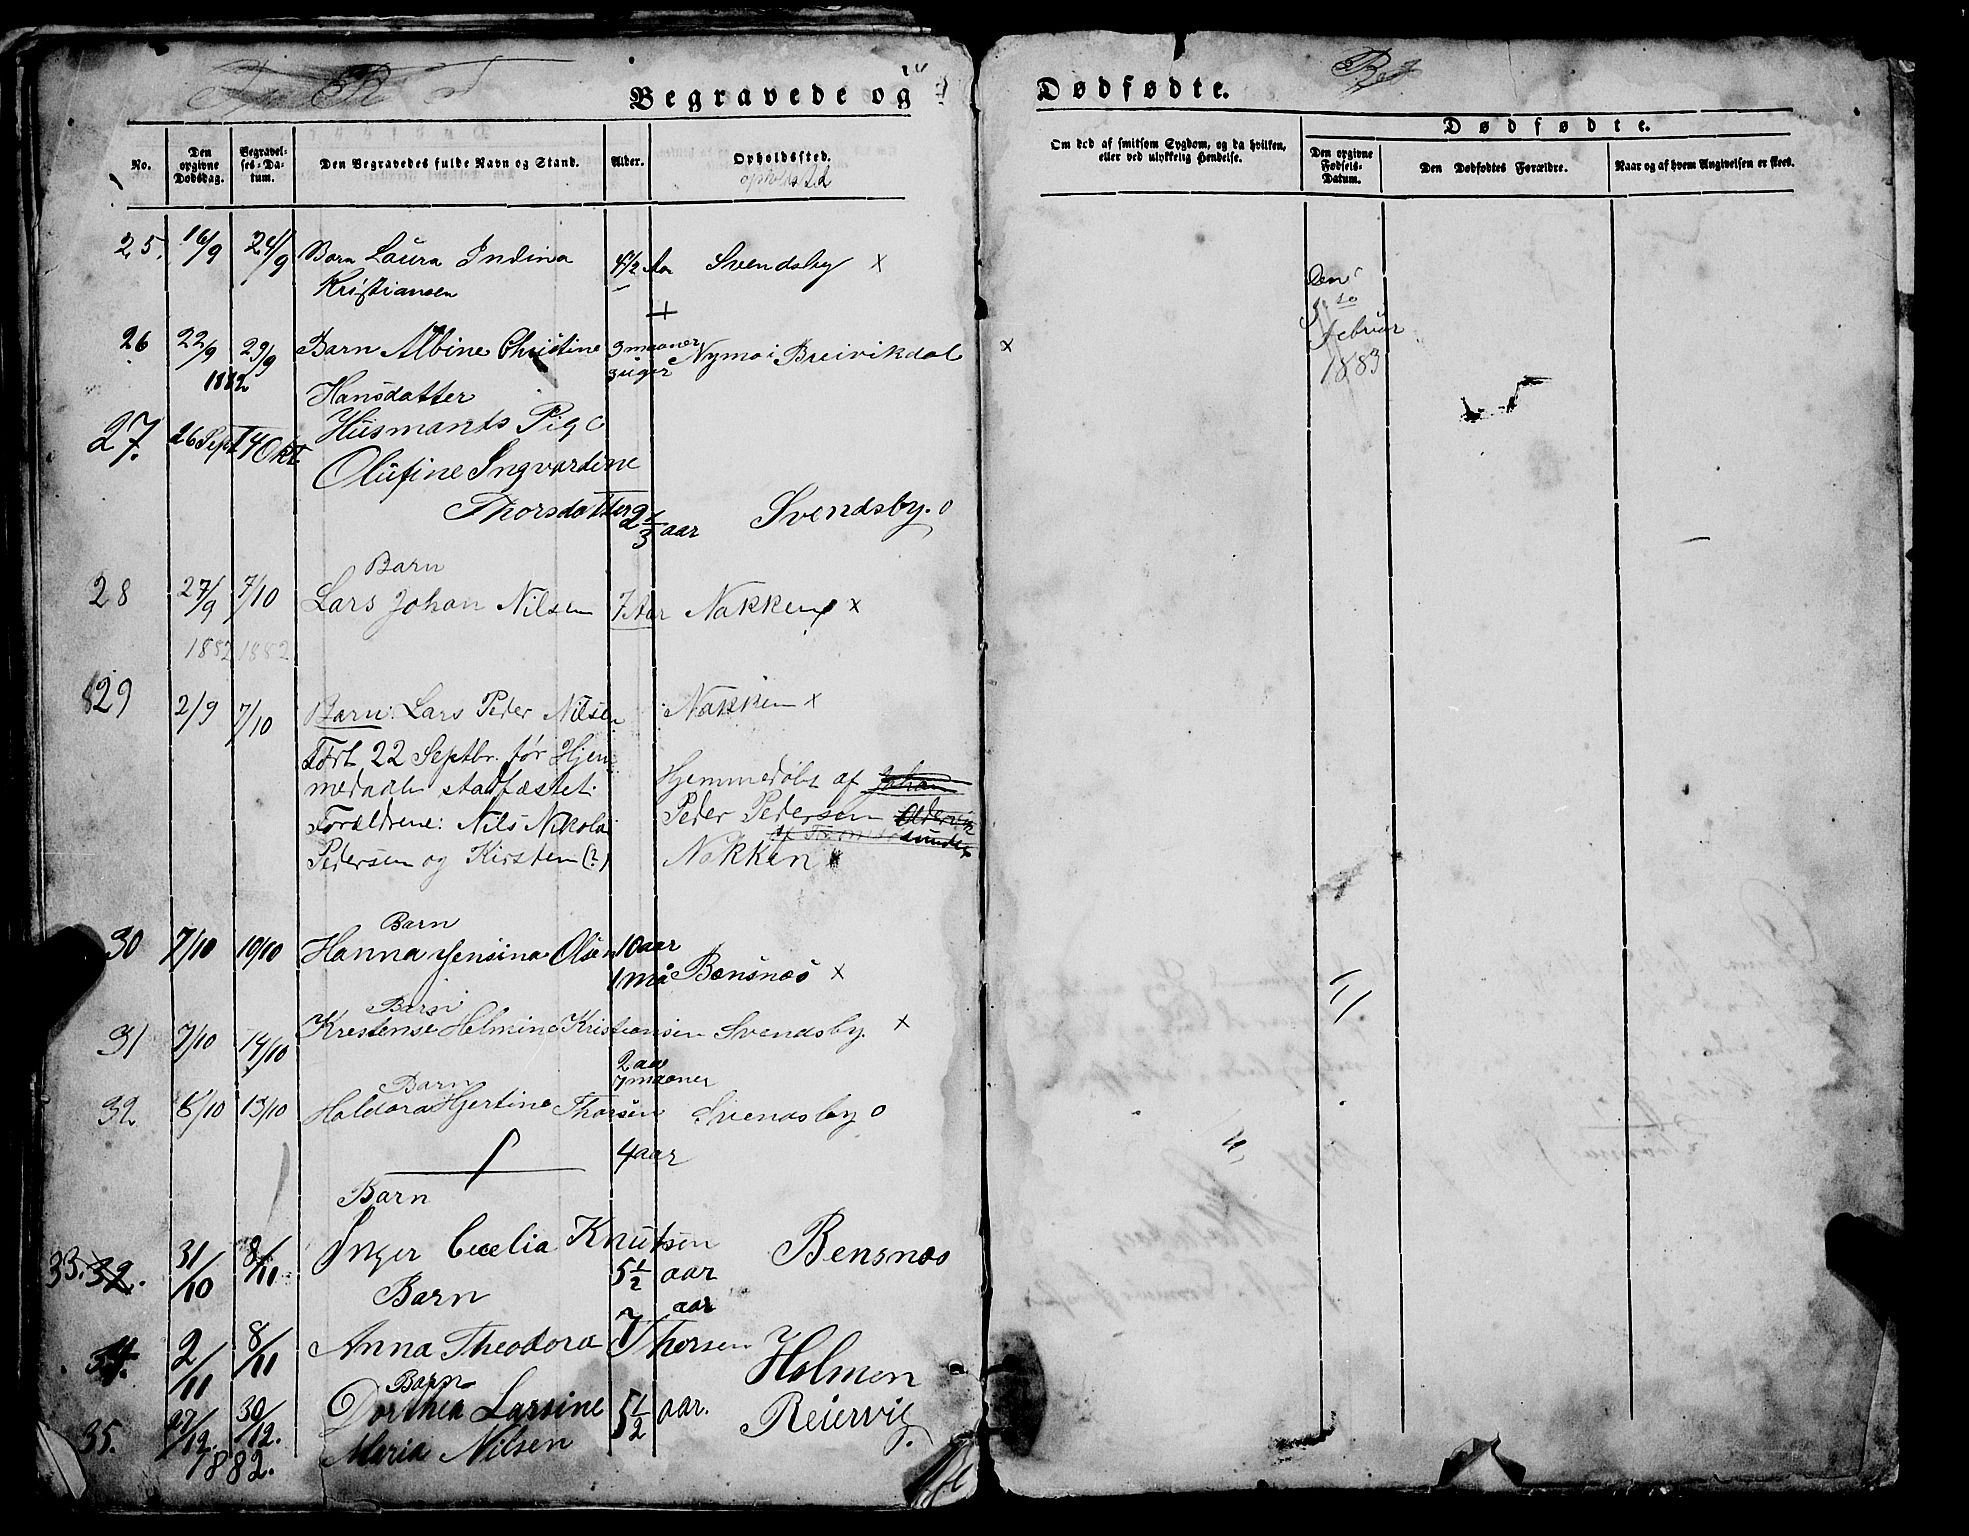 Begravede og
Dødfødte.
No.
Den opgivne Dødsdag.
Begravelses-Datum.
Den Begravedes fulde Navn og Stand.
Alder.
Opholdssted.
opholdsted
Om død af smitsom Sygdom, og da hvilken, eller ved ulykkelig Hendelse.
Dødfødte.
Den opgivne Fødsels-Datum.
Den Dødfødtes Forældre.
Naar og af hvem Angivelsen er skeet.
25. 16/9 24/9 Barn Laura Indina 4½ Aar Svendsby x
Kristiansen
26 22/9 29/9 Barn Albine Christine 3 maaner Nymo i Breivikdal x
1882 3 uger
Hansdatter
27. 26 Sept 14 Okt. Husmands Pige
Olufine Ingvardine
Thorsdatter 2 1/3 aar Svendsby. o
Barn
28 27/9 7/10 Lars Johan Nilsen 7 Aar Nakken x
1882 1882
29 2/9 7/10 Barn: Lars Peder Nilsen Nakken x
Født 22 Septbr. før Hjem-
medaab stadfæstet. Hjemmedøbt af Johan
Forældrene: Nils Nikolai Peder Pedersen
Pedersen og Kirsten (?) Nakken x
Barn
30 7/10 19/10 Hanna Jensina Olsen 10 aar
1 må Bensnæs x
Barn
31 7/10 14/10 Krestense Helmine Kristiansen Svendsby. x
2 aar
7 maaner
Barn
32 8/10 13/10 Haldora Hjertine Thorsen Svendsby o
4 aar
Barn
33. 32. 31/10 8/11 Inger Cecelia Knutsen Bensnæs
5½ aar
Barn
aar
34. 2/11 8/11 Anna Theodora 7 Thorsen Holmen
Barn
35. 27/12. 30/12. Dorthea Larsine 5½ aar. Reiervig.
Maria Nilsen
1882.
Den
5te
Februar
1883